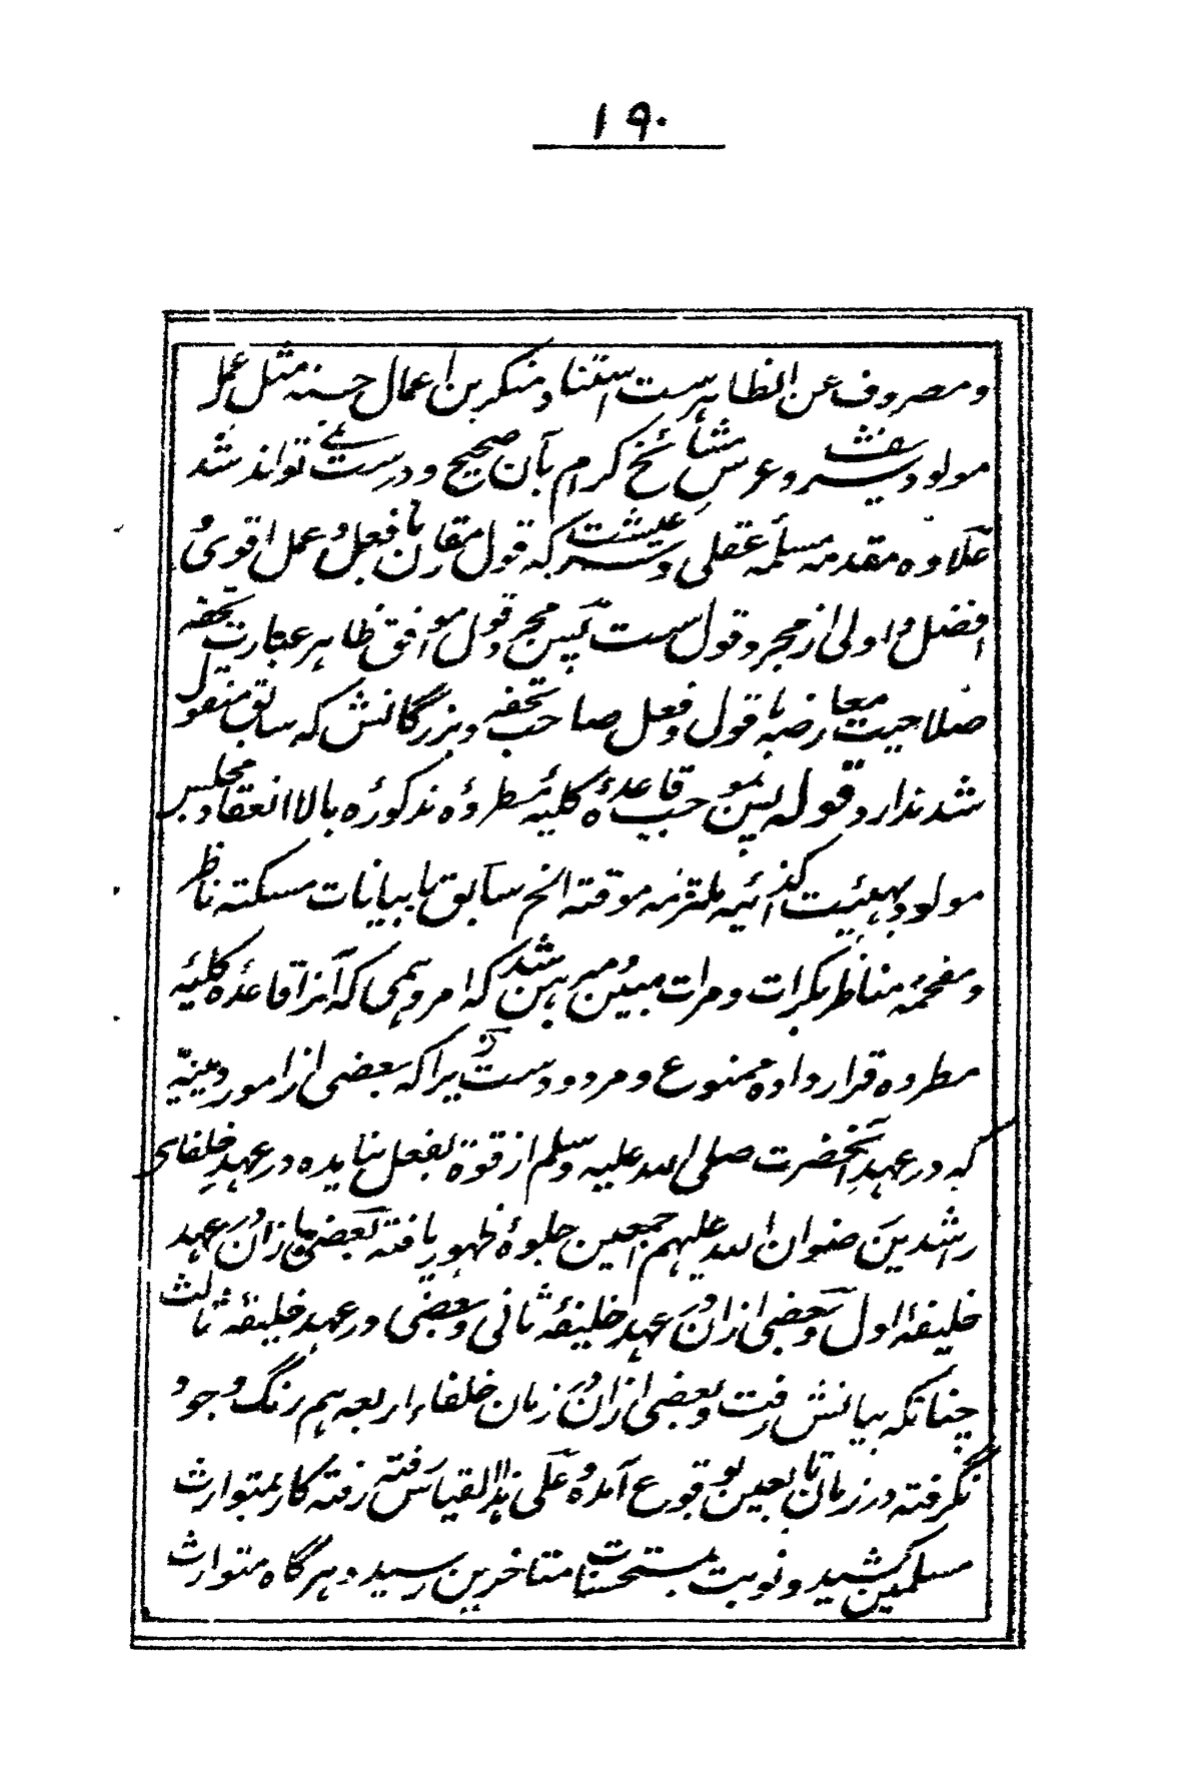 ۱۹۰
و مصروف عن الظاہرست استناد منکرین اعمال حسنہ مثل عمل
مولود شریف و عرس مشائخ کرام بآن صحیح و درست نمے تواند شد
علاوہ مقدمہ مسلمہ عقلی و شرعیست کہ قول مقارن بافعل و عمل اقوی و
افضل و اولی از مجرد قول ست پس مجرد قول موافق ظاہر عبارت تحفہ
صلاحیت معارضہ با قول و فعل صاحب تحفہ و بزرگانش کہ سابق منقول
شد ندارد قولہ پس بموجب قاعدۂ کلیۂ مطروۂ مذکورۂ بالا انعقاد مجلس
مولود بہیئت کذائیہ ملتزمہ موقتہ الخ سابق بابیانات مسکتہ ناظر
و مفحمۂ مناظر بکرات و مرات مبین و مبرہن شد کہ امر وہمی کہ آنرا قاعدۂ کلیۂ
مطروہ قرار دادہ ممنوع و مردودست زیراکہ بعضی از امور دینیہ
کہ در عہد آنحضرت صلی اللہ علیہ وسلم از قوة بفعل نیامدہ در عہد خلفای
راشدین رضوان اللہ علیہم اجمعین جلوۂ ظہور یافتہ بعضی ازان در عہد
خلیفۂ اول و بعضی ازان در عہد خلیفۂ ثانی و بعضی در عہد خلیفۂ ثالث
چنانکہ بیانش رفت و بعضی ازان در زمان خلفاء اربعہ ہم رنگ وجود
نگرفتہ در زمان تابعین بوقوع آمدہ و علی ہذا القیاس رفتہ رفتہ کار بمتوارث
مسلمین کشید و نوبت بمستحسنات متاخرین رسید و ہر گاہ متوارث